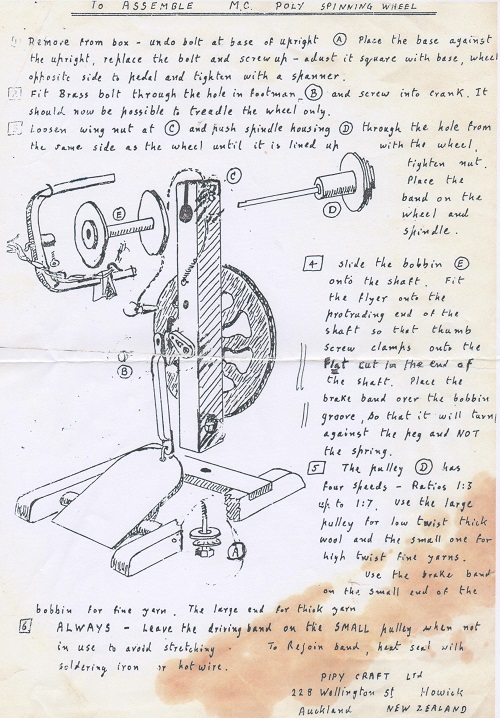 To ASSEMBLE M.C. POLY SPINNING WHEEL
1 Remove from box - undo bolt at base of upright (A) Place the base against
the upright, replace the bolt and screw up - adust it square with base, wheel
opposite side to pedal and tighten with a spanner.
2 Fit Brass bolt through the hole in footman (B) and screw into crank. It
should now be possible to treadle the wheel only.
3 Loosen wing nut at (C) and push spindle housing (D) through the hole from
the same side as the wheel until it is lined up with the wheel,
tighten nut.
Place the
band on the
wheel and
spindle.
C
E
D
4 slide the bobbin (E)
onto the shaft. Fit
the flyer onto the
protruding end of the
shaft so that thumb
screw clamps onto the
Flat cut in the end of
the shaft. Place the
brake band over the bobbin
groove, so that it will turn
against the peg and NOT
the spring.
B
5 The pulley (D) has
four speeds - Ratios 1:3
up to 1:7. use the large
pulley for low twist thick
wool and the small one for
high twist fine yarns.
A
Use the brake band
on the small end of the
bobbin for fine yarn. The large end for thick yarn
6 ALWAYS - Leave the driving band on the SMALL pulley when not
in use to avoid stretching. To Rejoin band, heat seal with
soldering iron or hot wire.
PIPY CRAFT Ltd
228 Wellington St Howick
Auckland NEW ZEALAND